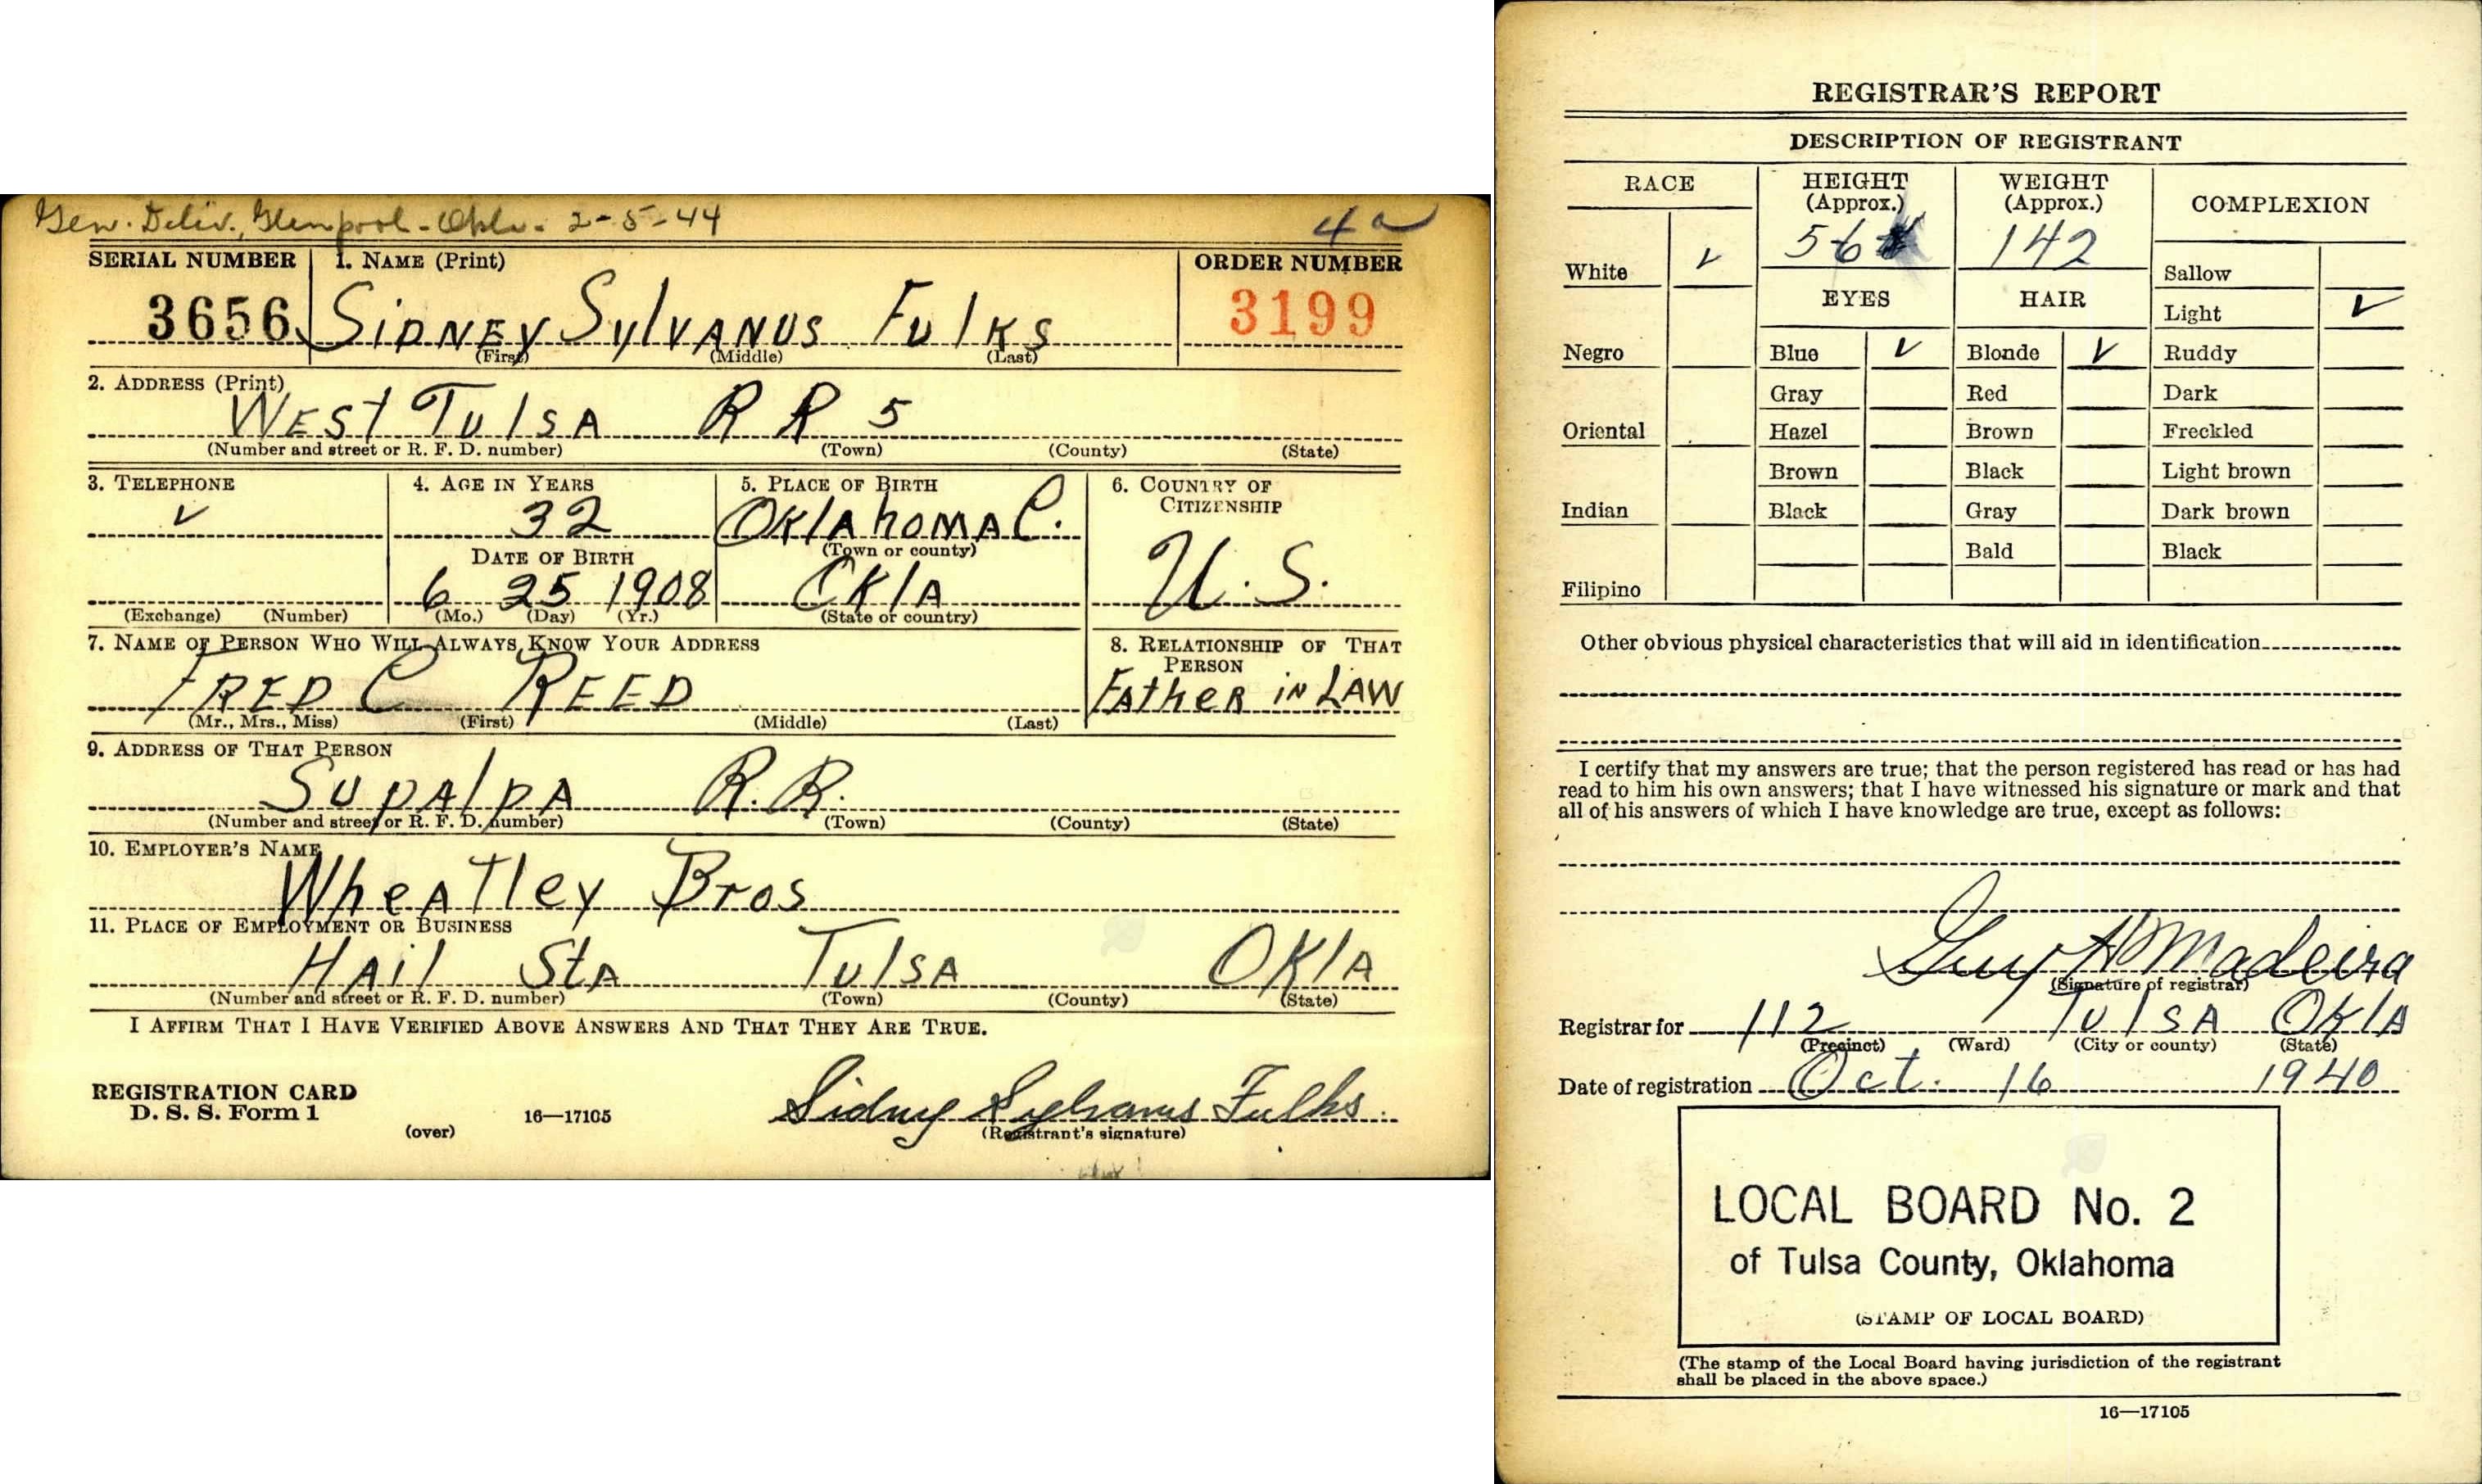 Gen. Deliv. Glenpool - Okla. 2-5-44
SERIAL NUMBER 1. NAME (Print) ORDER NUMBER
3656 SIDNEY SylVANUS FUlKS 3199
(First) (Middle) (Last)
2. ADDRESS (Print)
WEST TUlSA R R 5
(Number and street or R. F. D. number) (Town) (County) (State)
3. TELEPHONE 4. AGE IN YEARS 5. PLACE OF BIRTH 6. COUNTRY OF CITIZENSHIP
✓ 32 OKlAhOMA C.
(Town or county)
DATE OF BIRTH
6 25 1908 OKlA U. S.
(Exchange) (Number) (Mo.) (Day) (Yr.) (State or country)
7. NAME OF PERSON WHO WILL ALWAYS KNOW YOUR ADDRESS 8. RELATIONSHIP OF THAT PERSON
FRED C REED FAtheR iN LAW
(Mr., Mrs., Miss) (First) (Middle) (Last)
9. ADDRESS OF THAT PERSON
SUpAlpA R.R.
(Number and street or R. F. D. number) (Town) (County) (State)
10. EMPLOYER'S NAME
WheATley Bros
11. PLACE OF EMPLOYMENT OR BUSINESS
HAil StA TUlSA OKlA
(Number and street or R. F. D. number) (Town) (County) (State)
I AFFIRM THAT I HAVE VERIFIED ABOVE ANSWERS AND THAT THEY ARE TRUE.
REGISTRATION CARD
D. S. S. Form 1 16—17105 Sidney Sylvanus Fulks
(over) (Registrant's signature)
REGISTRAR'S REPORT
DESCRIPTION OF REGISTRANT
RACE HEIGHT (Approx.) WEIGHT (Approx.) COMPLEXION
56 142
White ✓ Sallow
EYES HAIR Light ✓
Negro Blue ✓ Blonde ✓ Ruddy
Gray Red Dark
Oriental Hazel Brown Freckled
Brown Black Light brown
Indian Black Gray Dark brown
Bald Black
Filipino
Other obvious physical characteristics that will aid in identification
I certify that my answers are true; that the person registered has read or has had
read to him his own answers; that I have witnessed his signature or mark and that
all of his answers of which I have knowledge are true, except as follows:
Guy H Madeira
(Signature of registrar)
Registrar for 112 TUlSA OKlA
(Precinct) (Ward) (City or county) (State)
Date of registration Oct. 16 1940
LOCAL BOARD No. 2
of Tulsa County, Oklahoma
(STAMP OF LOCAL BOARD)
(The stamp of the Local Board having jurisdiction of the registrant
shall be placed in the above space.)
16—17105